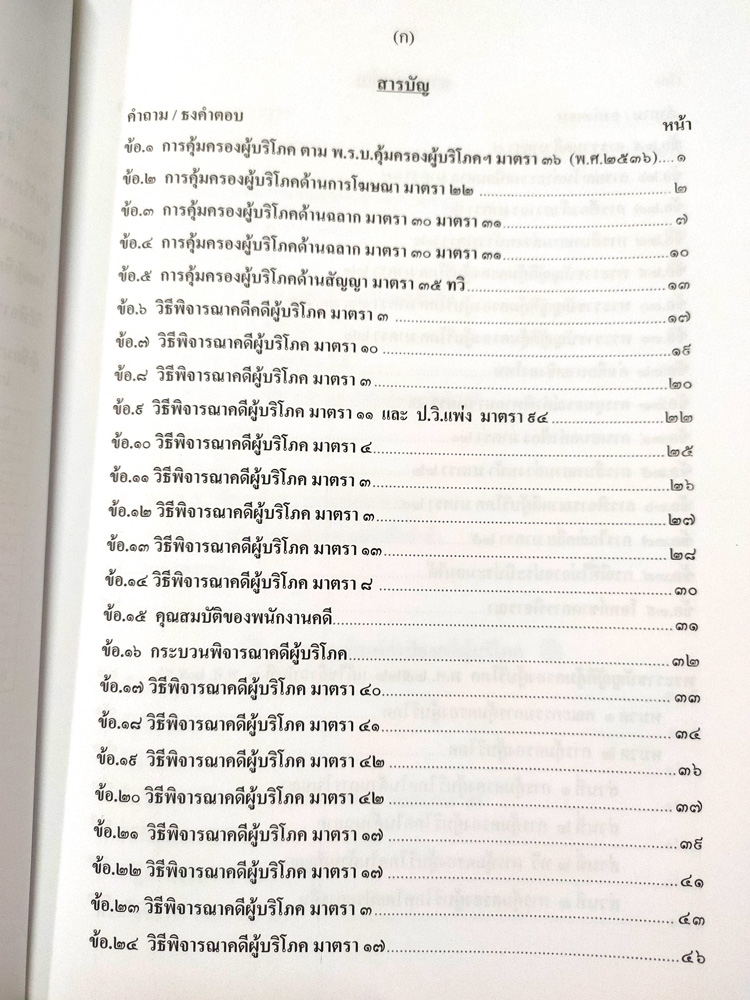 (ก)
สารบัญ
คำถาม / ธงคำตอบ
หน้า
ข้อ.๑ การคุ้มครองผู้บริโภค ตาม พ.ร.บ.คุ้มครองผู้บริโภคฯ มาตรา ๓๖ (พ.ศ.๒๕๓๖)....๑
ข้อ.๒ การคุ้มครองผู้บริโภคด้านการโฆษณา มาตรา ๒๒ ........ ๒
ข้อ.๓ การคุ้มครองผู้บริโภคด้านฉลาก มาตรา ๓๐ มาตรา ๓๑........ ๗
ข้อ.๔ การคุ้มครองผู้บริโภคด้านฉลาก มาตรา ๓๐ มาตรา ๓๑........๑๐
ข้อ.๕ การคุ้มครองผู้บริโภคด้านสัญญา มาตรา ๓๕ ทวิ ........๑๓
ข้อ.๖ วิธีพิจารณาคดีคดีผู้บริโภค มาตรา ๓ ........๑๗
ข้อ.๗ วิธีพิจารณาคดีผู้บริโภค มาตรา ๑๐ ........๑๙
ข้อ.๘ วิธีพิจารณาคดีผู้บริโภค มาตรา ๓ ........๒๐
ข้อ.๙ วิธีพิจารณาคดีผู้บริโภค มาตรา ๑๑ และ ป.วิ.แพ่ง มาตรา ๙๔ ........๒๒
ข้อ.๑๐ วิธีพิจารณาคดีผู้บริโภค มาตรา ๔........๒๕
ข้อ.๑๑ วิธีพิจารณาคดีผู้บริโภค มาตรา ๓........๒๖
ข้อ.๑๒ วิธีพิจารณาคดีผู้บริโภค มาตรา ๓........๒๗
ข้อ.๑๓ วิธีพิจารณาคดีผู้บริโภค มาตรา ๑๓........๒๘
ข้อ.๑๔ วิธีพิจารณาคดีผู้บริโภค มาตรา ๘ ........๓๐
ข้อ.๑๕ คุณสมบัติของพนักงานคดี........๓๑
ข้อ.๑๖ กระบวนพิจารณาคดีผู้บริโภค........๓๒
ข้อ.๑๗ วิธีพิจารณาคดีผู้บริโภค มาตรา ๔๐........๓๓
ข้อ.๑๘ วิธีพิจารณาคดีผู้บริโภค มาตรา ๔๑........๓๔
ข้อ.๑๙ วิธีพิจารณาคดีผู้บริโภค มาตรา ๔๒ ........๓๖
ข้อ.๒๐ วิธีพิจารณาคดีผู้บริโภค มาตรา ๔๒ ........๓๗
ข้อ.๒๑ วิธีพิจารณาคดีผู้บริโภค มาตรา ๑๗ ........๓๙
ข้อ.๒๒ วิธีพิจารณาคดีผู้บริโภค มาตรา ๑๗ ........๔๑
ข้อ.๒๓ วิธีพิจารณาคดีผู้บริโภค มาตรา ๓........๔๓
ข้อ.๒๔ วิธีพิจารณาคดีผู้บริโภค มาตรา ๑๗........๔๖